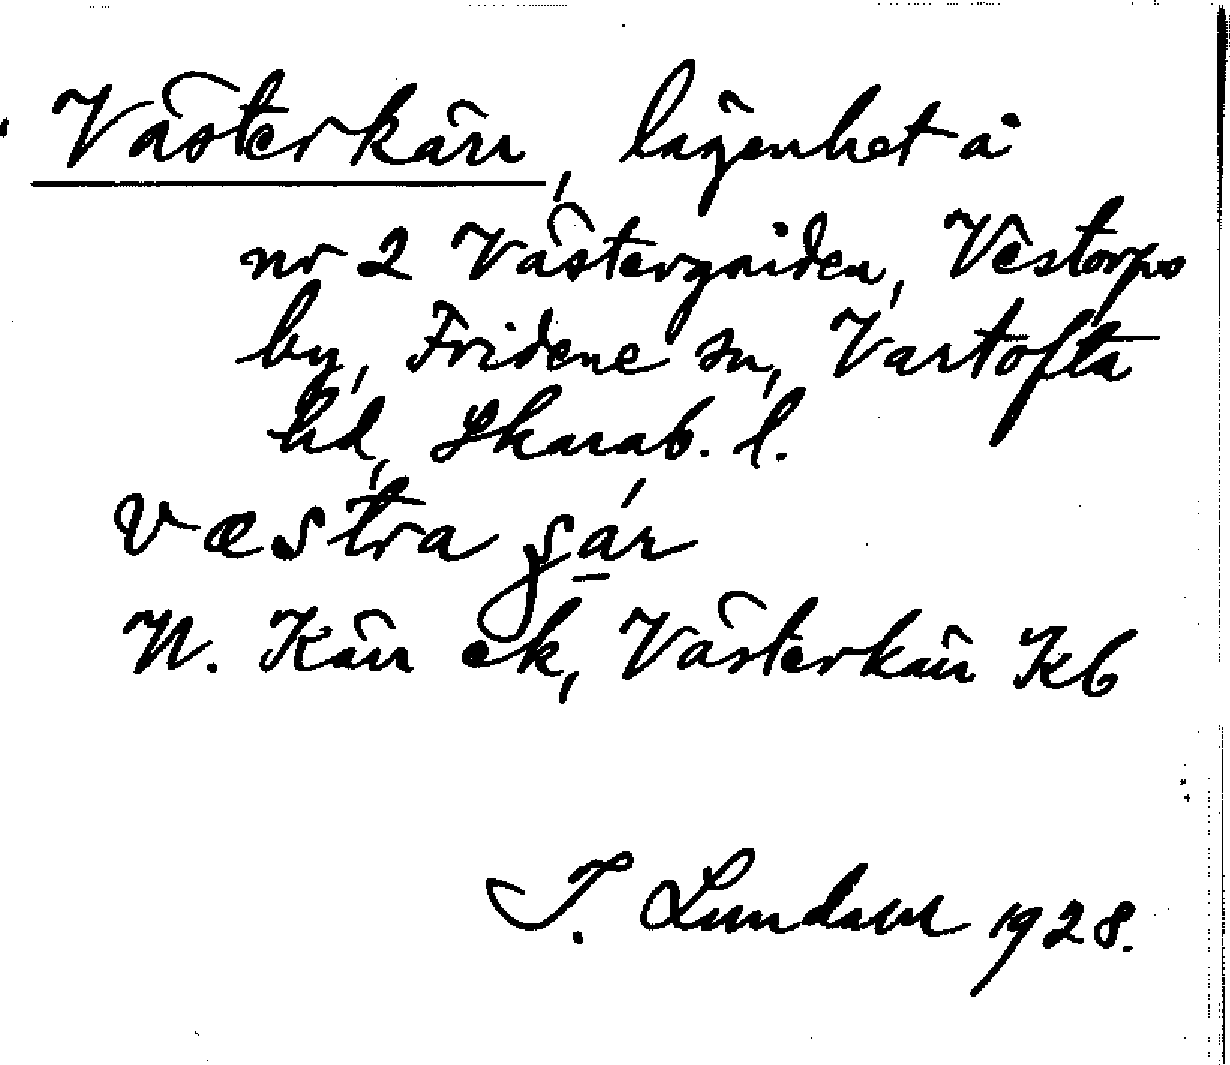 Västerkärr, lägenhet å
nr 2 Västergården, Vestorps
by, Fridene sn, Vartofta
hd, Skarab. l.
væstra gár
N. Kärr ek, Västerkärr Kb
I. Lundahl 1928.